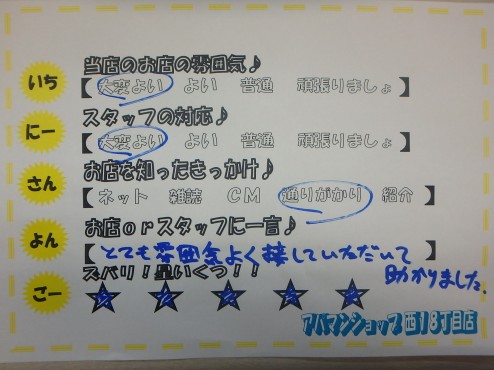 いち 当店のお店の雰囲気♪
【 大変よい よい 普通 頑張りましょ 】
にー スタッフの対応♪
【 大変よい よい 普通 頑張りましょ 】
さん お店を知ったきっかけ♪
【 ネット 雑誌 CM 通りがかり 紹介 】
よん お店orスタッフに一言♪
【 とても雰囲気よく接していただいて
助かりました。
ごー ズバリ!星いくつ!!
★ ★ ★ ★ ★
アパマンショップ西18丁目店